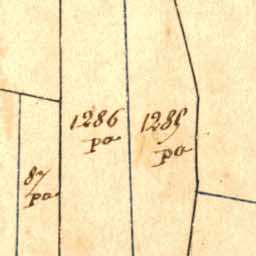 1286
pa
1285
pa
87
pa